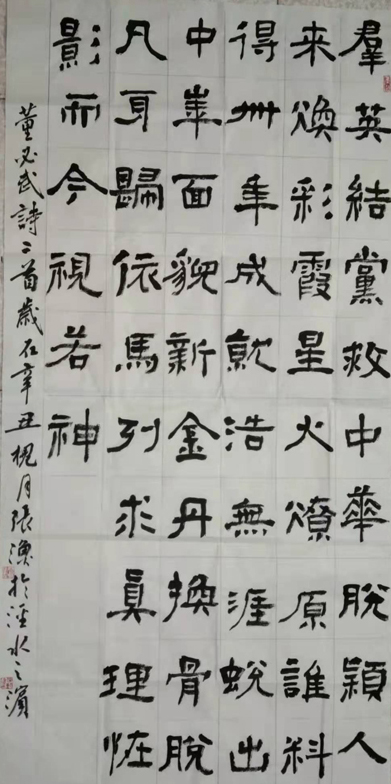 羣英結黨救中華脫穎人
来煥彩霞星火燎原誰料
得卅年成就浩無涯蛻出
中崋面貌新金丹換骨脫
凡身歸依馬列求眞理恠
影而今視若神
董必武詩二首歲在辛丑槐月張漁於水之濱